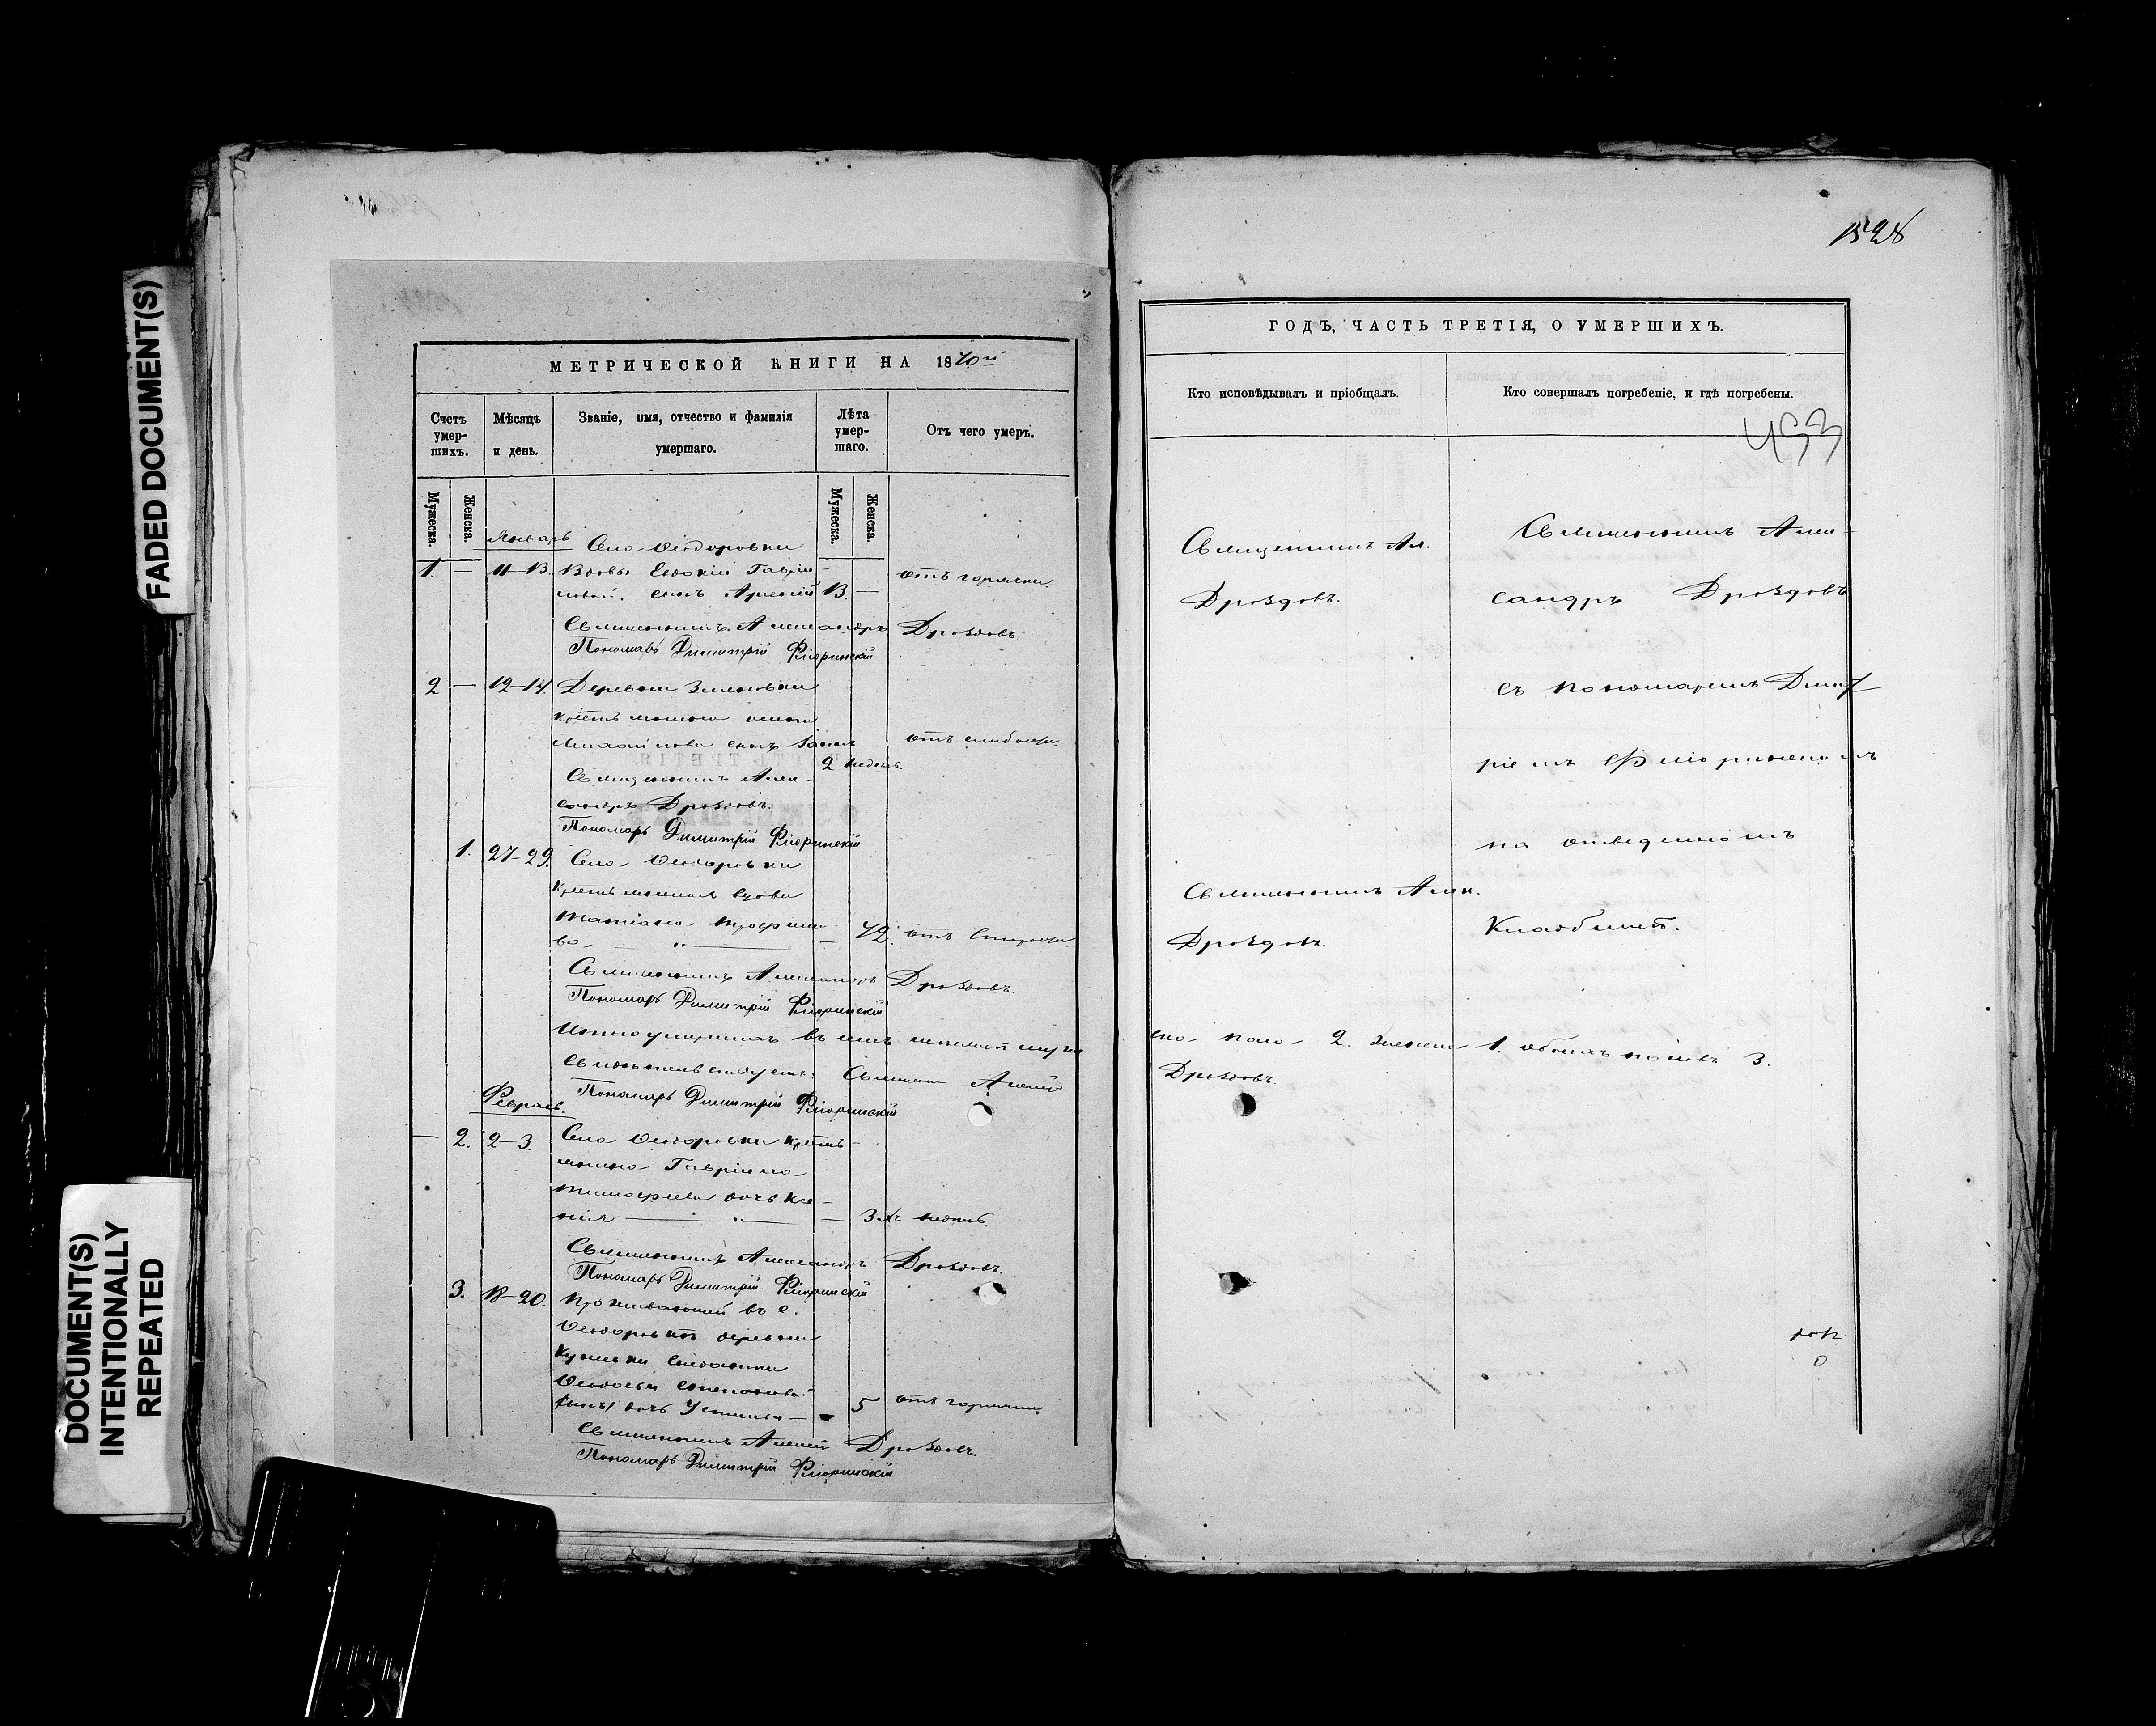 FADED DOCUMENT(S)
DOCUMENT(S)
INTENTIONALLY
REPEATED
МЕТРИЧЕСКОЙ КНИГИ НА 1870й
Счетъ умер-шихъ.
Мѣсяцъ и день.
Званіе, имя, отчество и фамилія умершаго.
Лѣта умер-шаго.
Отъ чего умеръ.
Мужеска.
Женска.
Мужеска.
Женска.
Январь
Село Ѳеодоровки
1. — 11-13. Вдовы Евдокіи Гаврии-
ловой, сынъ Арсеній 13. — отъ горячки.
Священникъ Александръ Дроздовъ.
Пономарь Димитрій Фліоринскій
2 — 12-14. Деревни
крестьянина
Михайлова сынъ отъ слабости.
2 недѣль.
Священникъ Алек-
сандръ Дроздовъ.
Пономарь Димитрій Фліоринскій
1. 27-29. Село Ѳеодоровки
крестьянская вдова
Татіана Трофимо-
ва — „ — — 72. отъ старости.
Священникъ Александръ Дроздовъ.
Пономарь Димитрій Фліоринскій
Итого умершихъ въ мужс
Свидѣтельствуемъ: Священ. Алексан.
Пономарь Димитрій Фліоринскій
Февраль.
— 2. 2-3. Село Ѳеодоровки крестья-
нина Гавріила
Тимофеева дочь Ксе-
нія — „ — — 3хъ недѣль.
Священникъ Александръ Дроздовъ.
Пономарь Димитрій Фліоринскій
3. 18-20. Проживающей въ с.
Ѳеодоровкѣ деревни
солдатки
Ѳеодосьи Степановой
дочь Устинья — 5 отъ горячки.
Священникъ Алексан. Дроздовъ.
Пономарь Димитрій Фліоринскій
1528
ГОДЪ, ЧАСТЬ ТРЕТІЯ, О УМЕРШИХЪ.
Кто исповѣдывалъ и пріобщалъ.
Кто совершалъ погребеніе, и гдѣ погребены.
493
Священникъ Ал.
Дроздовъ.
Священникъ Алек-
сандръ Дроздовъ
съ пономаремъ Димит
ріемъ Фліоринскимъ
на отведенномъ
Кладбищѣ.
Священникъ Алек.
Дроздовъ.
ска пола 2. женск- 1. обоихъ половъ 3.
Дроздовъ.